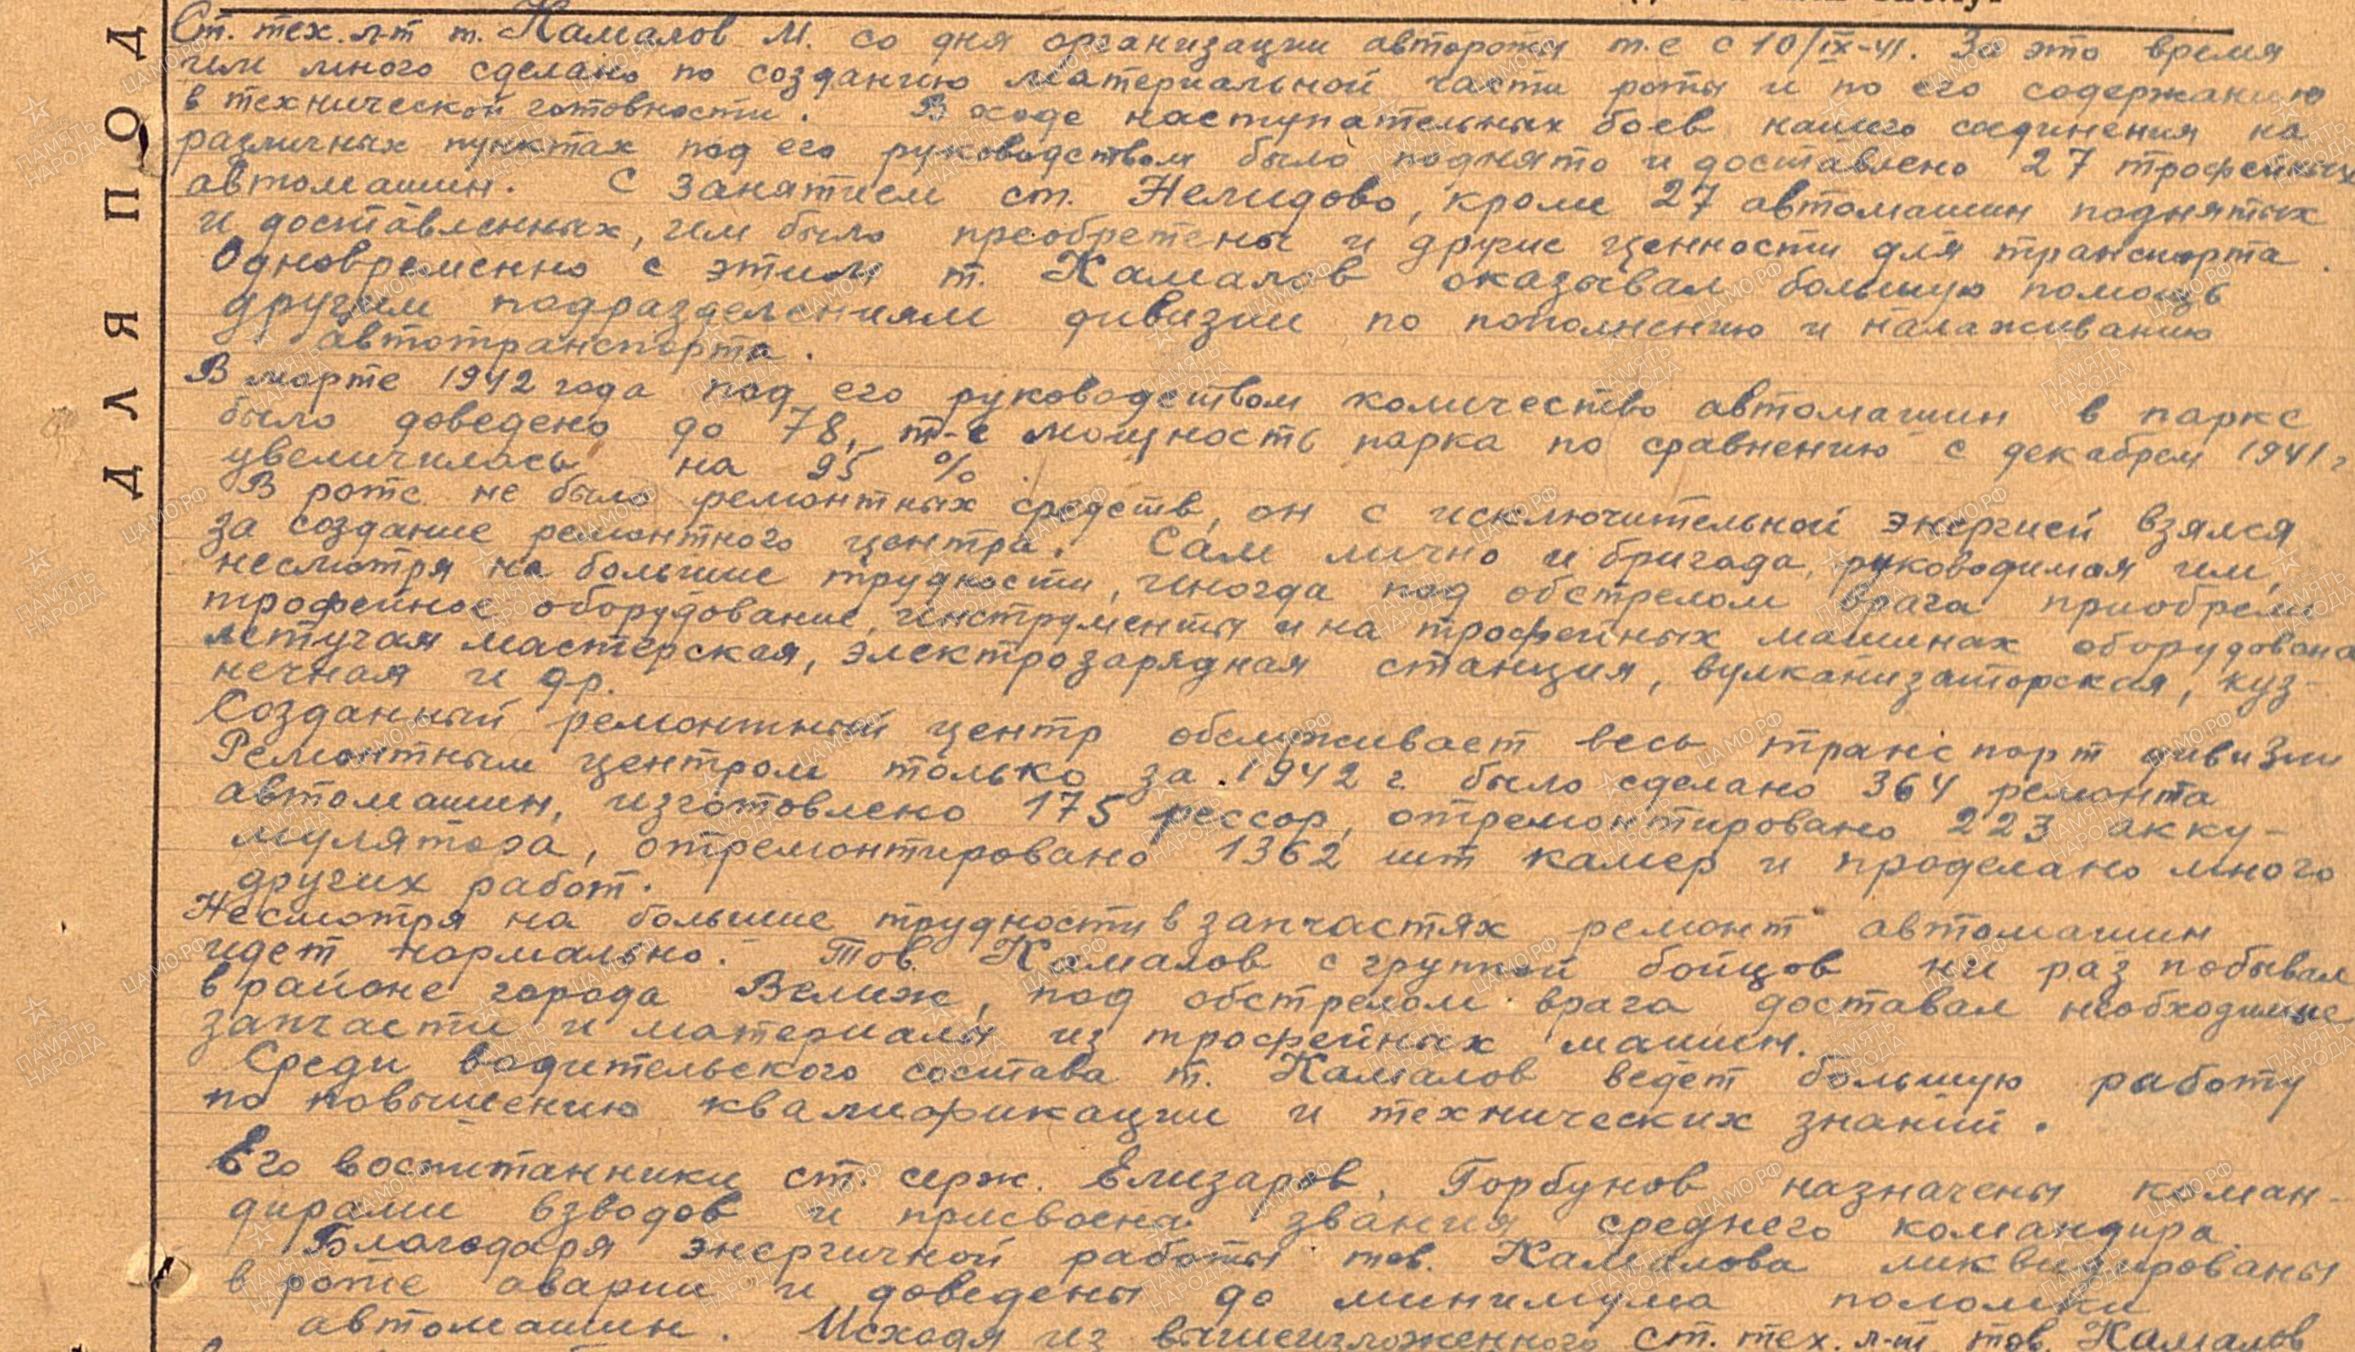 ДЛЯ ПОД
Ст. тех. л-т т. Камалов М. со дня организации автороты т.е с 10/IX-41. За это время
им много сделано по созданию материальной части роты и по его содержанию
в технической готовности. В ходе наступательных боев нашего соединения на
различных пунктах под его руководством было поднято и доставлено 27 трофейных
автомашин. С занятием ст. Нелидово, кроме 27 автомашин поднятых
и доставленных, им было преобретены и другие ценности для транспорта.
Одновременно с этим т. Камалов оказывал большую помощь
другим подразделениям дивизии по пополнению и налаживанию
автотранспорта.
В марте 1942 года под его руководством количество автомашин в парке
было доведено до 78, т-е мощность парка по сравнению с декабрем 1941 г
увеличилась на 95 %.
В роте не было ремонтных средств, он с исключительной энергией взялся
за создание ремонтного центра. Сам лично и бригада, руководимая им,
несмотря на большие трудности, иногда под обстрелом врага приобрели
трофейное оборудование, инструменты и на трофейных машинах оборудована
летучая мастерская, электрозарядная станция, вулканизаторская, куз-
нечная и др.
Созданный ремонтный центр обслуживает весь транспорт дивизии
Ремонтным центром только за 1942 г. было сделано 364 ремонта
автомашин, изготовлено 175 рессор, отремонтировано 223 акку-
мулятора, отремонтировано 1362 шт камер и проделано много
других работ.
Несмотря на большие трудности в запчастях ремонт автомашин
идет нормально. Тов. Камалов с группой бойцов ни раз побывал
в районе города Велиж, под обстрелом врага доставал необходимые
запчасти и материалы из трофейных машин.
Среди водительского состава т. Камалов ведет большую работу
по повышению квалификации и технических знаний.
Его воспитанники ст. серж. Елизаров, Горбунов назначены коман-
дирами взводов и присвоены звания среднего командира.
Благодаря энергичной работы тов. Камалова ликвидированы
в роте аварии и доведены до минимума поломки
автомашин. Исходя из вышеизложенного ст. тех. л-т тов. Камалов